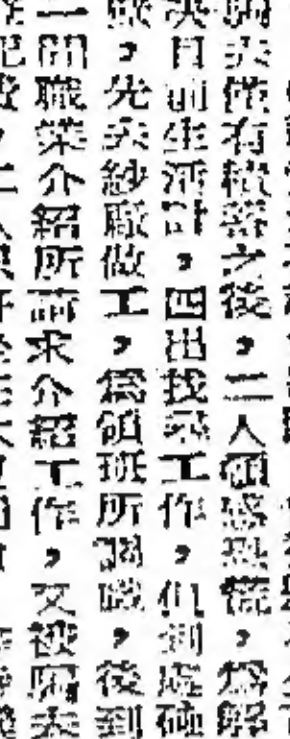 騙去僅有積蓄之後，二人頓感恐慌，為解
決目前生活計，四出找尋工作，但到處碰
，先去紗廠做工，為領班所調戲，後到
一間職業介紹所前求介紹工作，又被騙去